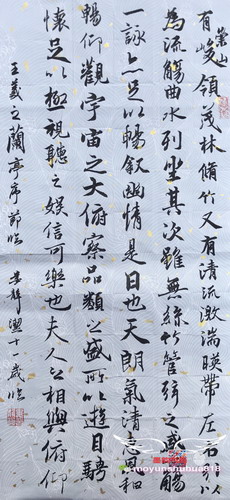 崇山
有峻領茂林脩竹又有清流激湍暎帶左右引以
為流觴曲水列坐其次雖無絲竹管弦之盛一觴
一詠亦足以暢敘幽情是日也天朗氣清惠風和
暢仰觀宇宙之大俯察品類之盛所以遊目騁
懷足以極視聽之娛信可樂也夫人之相與俯仰
王羲之蘭亭序節臨 十一歲臨